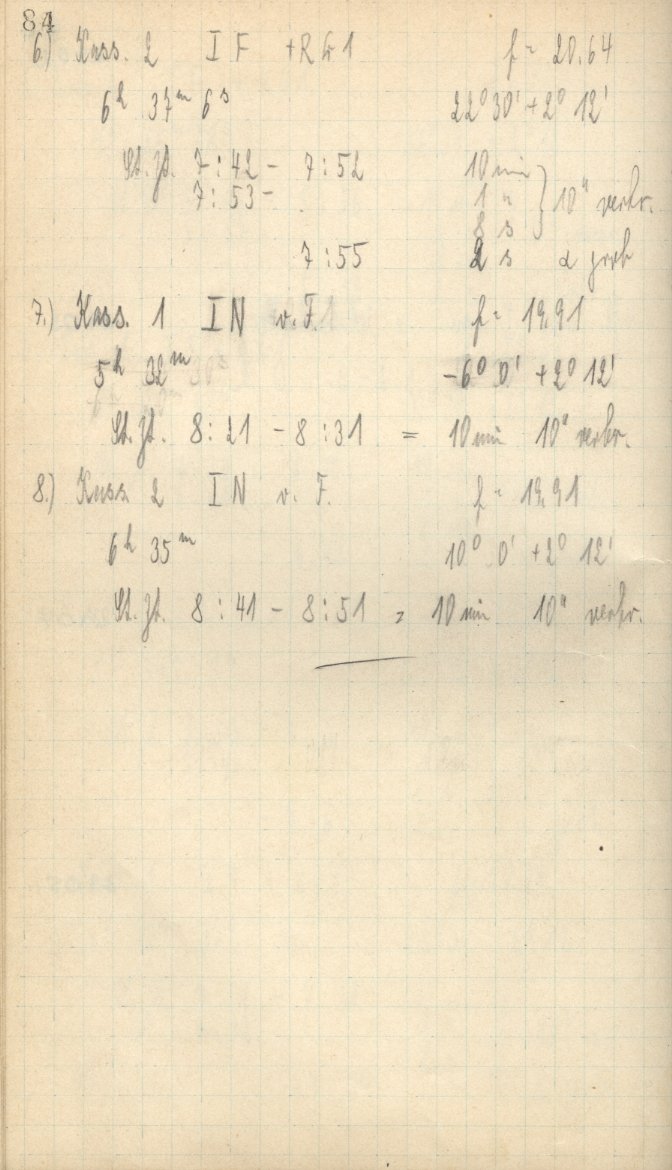 84
6) Kass. 2 I F + R G 1 f = 20.64
6h 37m 6s 22° 30' + 2° 12'
St. Zt. 7:42 - 7:52 10 min
7:53 - 1 " } 10" verbr.
8 s
7:55 2 s α grob
7.) Kass. 1 I N v. F. f = 19.91
5h 32m -6° 0' + 2° 12'
St. Zt. 8:21 - 8:31 = 10 min 10" verbr.
8.) Kass 2 I N v. F. f = 19.91
6h 35m 10° 0' + 2° 12'
St. Zt. 8:41 - 8:51 = 10 min 10" verbr.